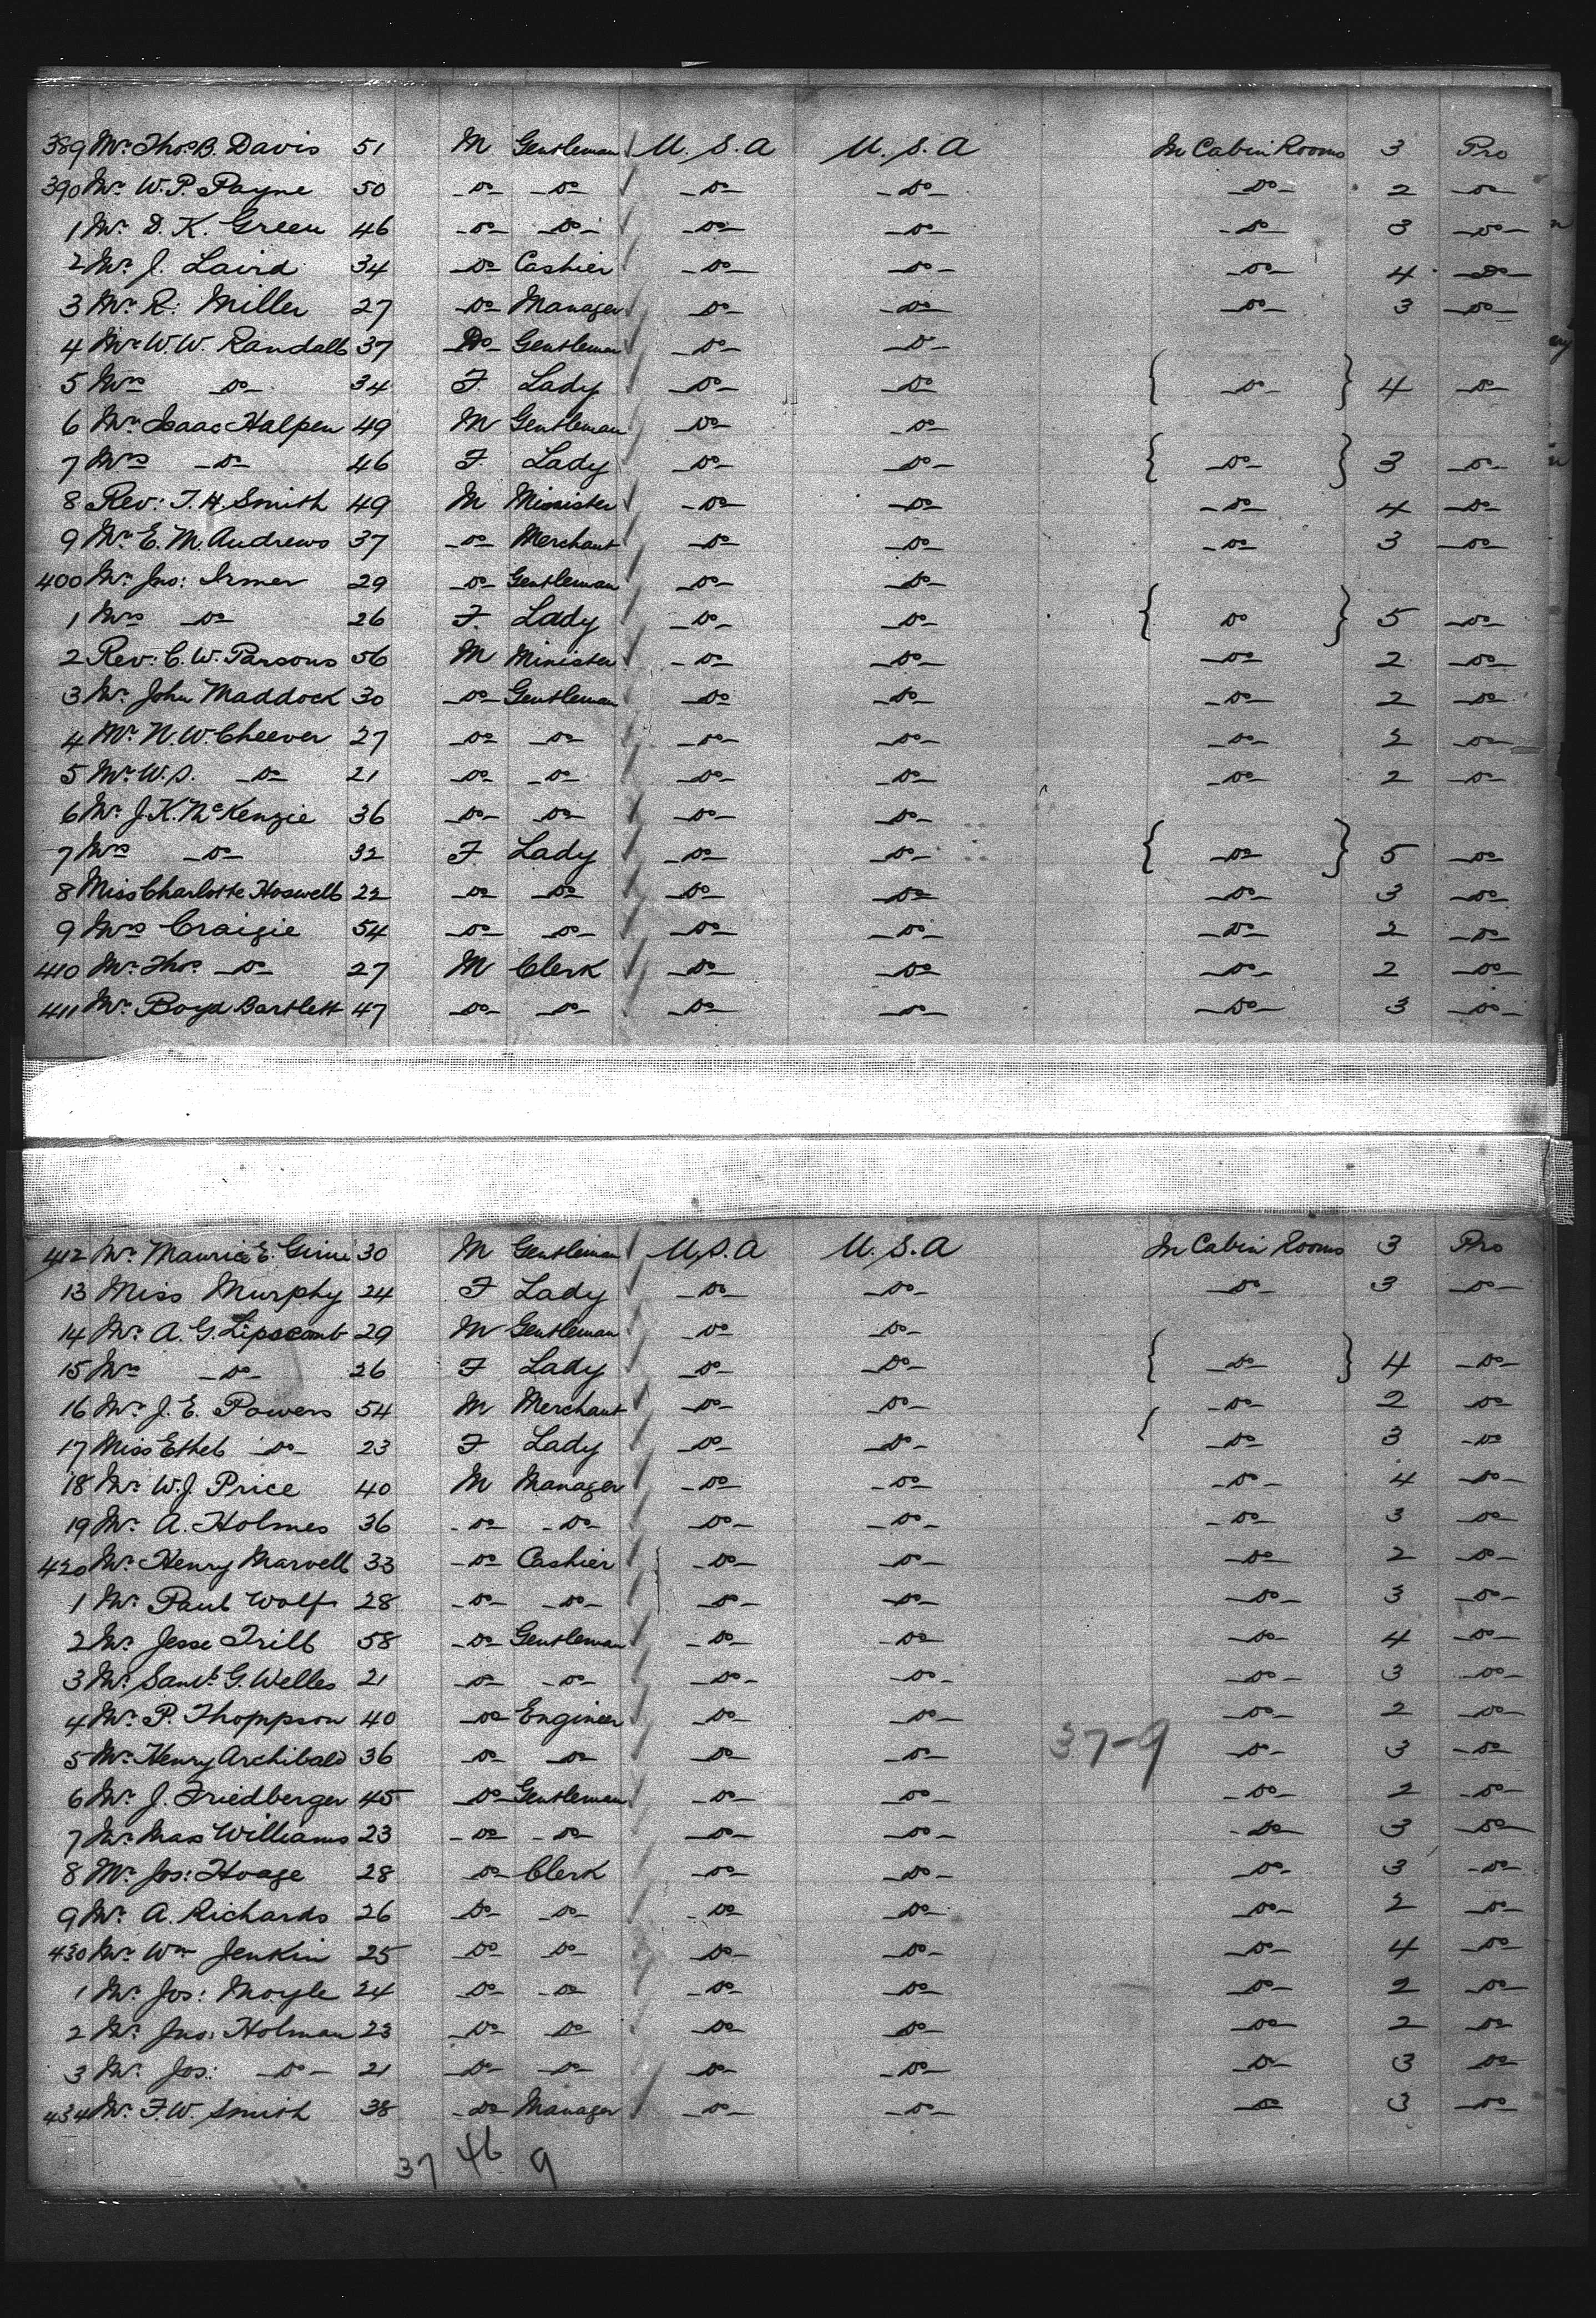 389 Mr. Thos. B. Davis 51 M Gentleman U.S.A U.S.A In Cabin Rooms 3 Pro
390 Mr. W. P. Payne 50 -do- -do- -do- -do- -do- 2 -do-
1 Mr. D. K. Green 46 -do- -do- -do- -do- -do- 3 -do-
2 Mr. J. Laird 34 -do- Cashier -do- -do- -do- 4 -do-
3 Mr. R. Miller 27 -do- Manager -do- -do- -do- 3 -do-
4 Mr. W. W. Randall 37 Do- Gentleman -do- -do-
5 Mrs -do- 34 F. Lady -do- -do- { -do- } 4 -do-
6 Mr. Isaac Halpen 49 M Gentleman -do- -do-
7 Mrs -do- 46 F. Lady -do- -do- { -do- } 3 -do-
8 Rev: T. H. Smith 49 M Minister -do- -do- -do- 4 -do-
9 Mr. E. M. Andrews 37 -do- Merchant -do- -do- -do- 3 -do-
400 Mr. Jno: Irmer 29 -do- Gentleman -do- -do-
1 Mrs -do- 26 F. Lady -do- -do- { do } 5 -do-
2 Rev: C. W. Parsons 56 M Minister -do- -do- -do- 2 -do-
3 Mr. John Maddock 30 -do- Gentleman -do- -do- -do- 2 -do-
4 Mr. N. W. Cheever 27 -do- -do- -do- -do- -do- 2 -do-
5 Mr. W. S. -do- 21 -do- -do- -do- -do- -do- 2 -do-
6 Mr. J. K. McKenzie 36 -do- -do- -do- -do-
7 Mrs -do- 32 F Lady -do- -do- { -do- } 5 -do-
8 Miss Charlotte Hoswell 22 -do- -do- -do- -do- -do- 3 -do-
9 Mrs Craigie 54 -do- -do- -do- -do- -do- 2 -do-
410 Mr. Thos. -do- 27 M Clerk -do- -do- -do- 2 -do-
411 Mr. Boyd Bartlett 47 -do- -do- -do- -do- -do- 3 -do-
412 Mr. Maurice E. 30 M Gentleman U.S.A U.S.A In Cabin Rooms 3 Pro
13 Miss Murphy 24 F Lady -do- -do- -do- 3 -do-
14 Mr. A. G. Lipscomb 29 M Gentleman -do- -do-
15 Mrs -do- 26 F Lady -do- -do- { -do- } 4 -do-
16 Mr. J. E. Powers 54 M Merchant -do- -do- -do- 2 -do-
17 Miss Ethel -do- 23 F Lady -do- -do- { -do- 3 -do-
18 Mr. W. J. Price 40 M Manager -do- -do- -do- 4 -do-
19 Mr. A. Holmes 36 -do- -do- -do- -do- -do- 3 -do-
420 Mr. Henry Marvell 33 -do- Cashier -do- -do- -do- 2 -do-
1 Mr. Paul Wolf 28 -do- -do- -do- -do- -do- 3 -do-
2 Mr. Jesse Trill 58 -do- Gentleman -do- -do- -do- 4 -do-
3 Mr. Saml. G. Welles 21 -do- -do- -do- -do- -do- 3 -do-
4 Mr. P. Thompson 40 -do- Engineer -do- -do- -do- 2 -do-
5 Mr. Henry Archibald 36 -do- -do- -do- -do- 37-9 -do- 3 -do-
6 Mr. J. Friedberger 45 -do- Gentleman -do- -do- -do- 2 -do-
7 Mr. Max Williams 23 -do- -do- -do- -do- -do- 3 -do-
8 Mr. Jos: Hoage 28 -do- Clerk -do- -do- -do- 3 -do-
9 Mr. A. Richards 26 -do- -do- -do- -do- -do- 2 -do-
430 Mr. Wm Jenkin 25 -do- -do- -do- -do- -do- 4 -do-
1 Mr. Jos: Moyle 24 -do- -do- -do- -do- -do- 2 -do-
2 Mr. Jno: Holman 23 -do- -do- -do- -do- -do- 2 -do-
3 Mr. Jos: -do- 21 -do- -do- -do- -do- -do- 3 -do-
434 Mr. F. W. Smith 38 -do- Manager -do- -do- -do- 3 -do-
37 46 9